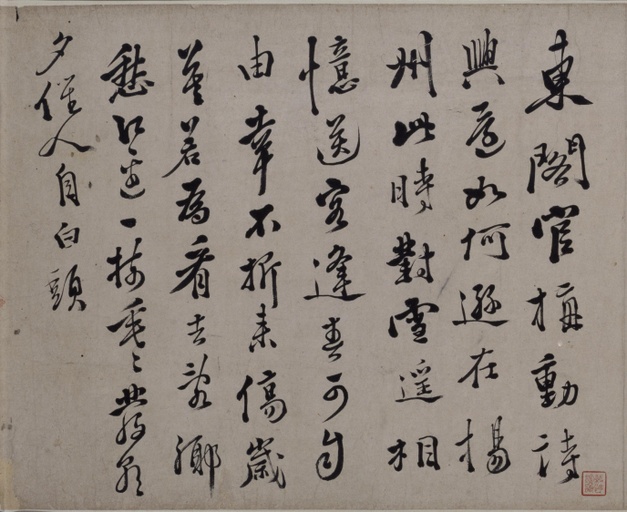 東閣官梅動詩
興還如何遜在揚
州此時對雪遥相
憶送客逢春可自
由幸不折来傷歲
暮若為看去亂鄉
愁江邊一樹垂々發朝
夕催人自白頭